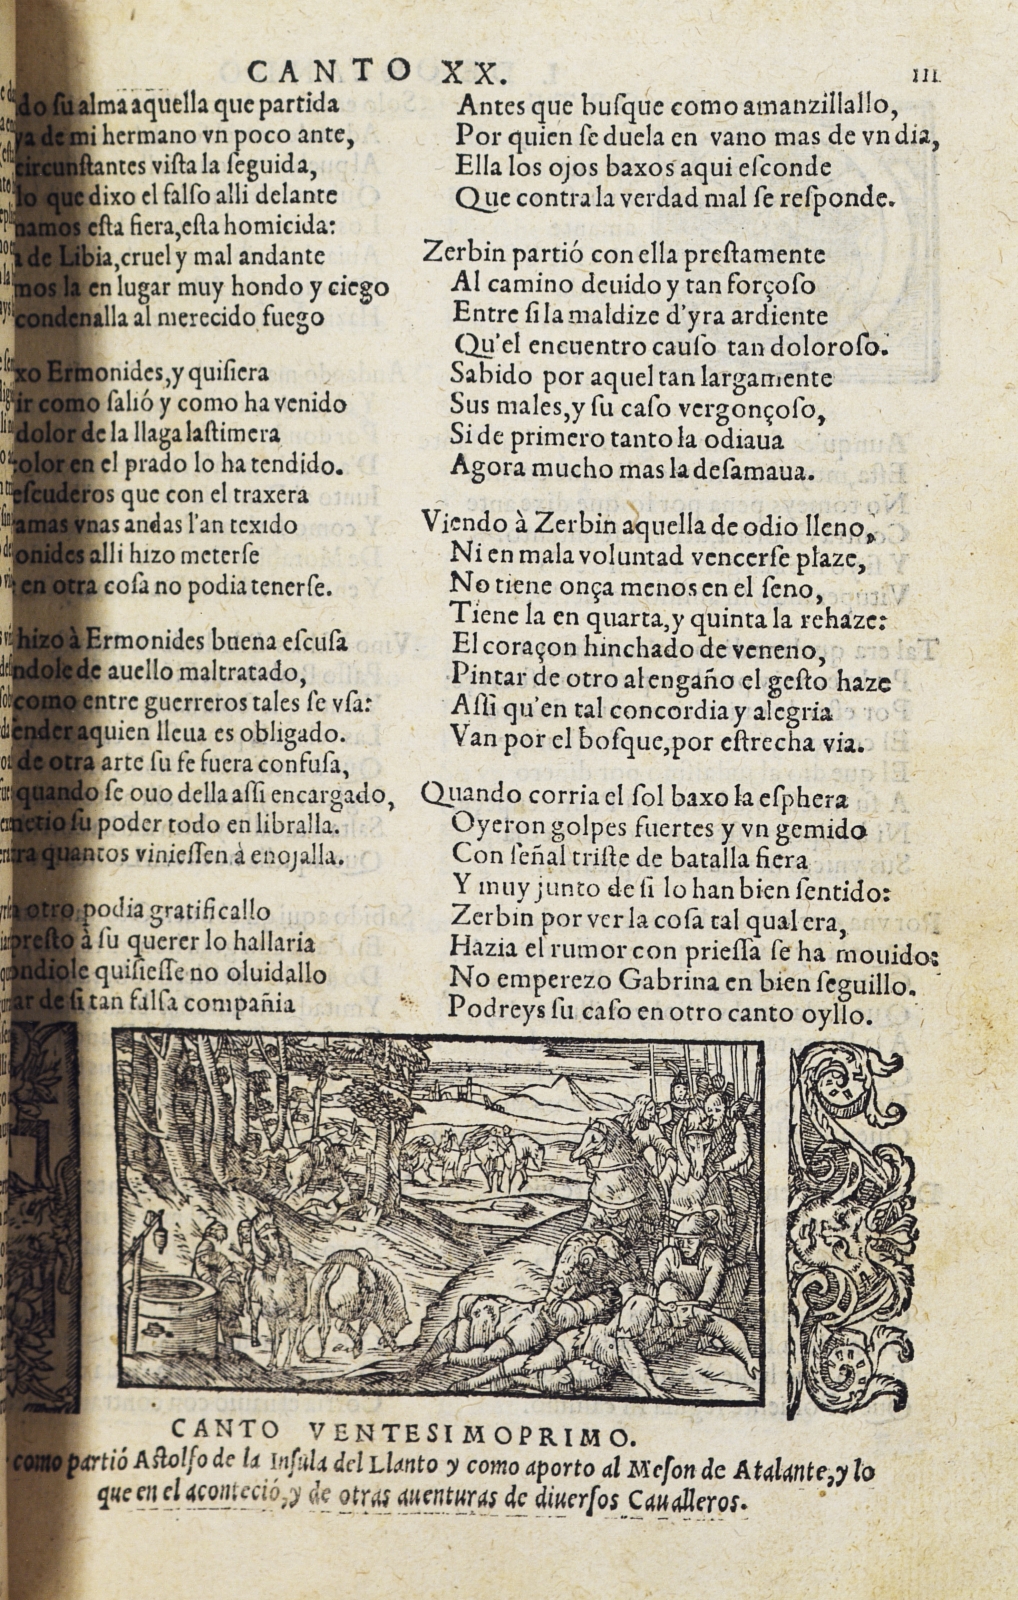 CANTO XX.
III
do su alma aquella que partida
ya de mi hermano vn poco ante,
circunstantes vista la seguida,
lo que dixo el falso alli delante
namos esta fiera, esta homicida:
de Libia, cruel y mal andante
mos la en lugar muy hondo y ciego
condenalla al merecido fuego
xo Ermonides, y quisiera
ir como salió y como ha venido
dolor de la llaga lastimera
olor en el prado lo ha tendido.
escuderos que con el traxera
amas vnas andas l'an texido
onides alli hizo meterse
en otra cosa no podia tenerse.
hizo à Ermonides buena escusa
ndole de auello maltratado,
como entre guerreros tales se vsa:
ender aquien lleua es obligado.
de otra arte su fe fuera confusa,
quando se ouo della assi encargado,
metio su poder todo en libralla.
tra quantos viniessen à enojalla.
otro podia gratificallo
presto à su querer lo hallaria
ondiole quisiesse no oluidallo
ar de si tan falsa compañia
Antes que busque como amanzillallo,
Por quien se duela en vano mas de vn dia,
Ella los ojos baxos aqui esconde
Que contra la verdad mal se responde.
Zerbin partió con ella prestamente
Al camino deuido y tan forçoso
Entre si la maldize d'yra ardiente
Qu'el encuentro causo tan doloroso.
Sabido por aquel tan largamente
Sus males, y su caso vergonçoso,
Si de primero tanto la odiaua
Agora mucho mas la desamaua.
Viendo à Zerbin aquella de odio lleno,
Ni en mala voluntad vencerse plaze,
No tiene onça menos en el seno,
Tiene la en quarta, y quinta la rehaze:
El coraçon hinchado de veneno,
Pintar de otro al engaño el gesto haze
Assi qu'en tal concordia y alegria
Van por el bosque, por estrecha via.
Quando corria el sol baxo la esphera
Oyeron golpes fuertes y vn gemido
Con señal triste de batalla fiera
Y muy junto de si lo han bien sentido:
Zerbin por ver la cosa tal qual era,
Hazia el rumor con priessa se ha mouido:
No emperezo Gabrina en bien seguillo.
Podreys su caso en otro canto oyllo.
CANTO VENTESIMOPRIMO.
como partió Astolfo de la Insula del Llanto y como aporto al Meson de Atalante, y lo
que en el aconteció, y de otras auenturas de diuersos Caualleros.